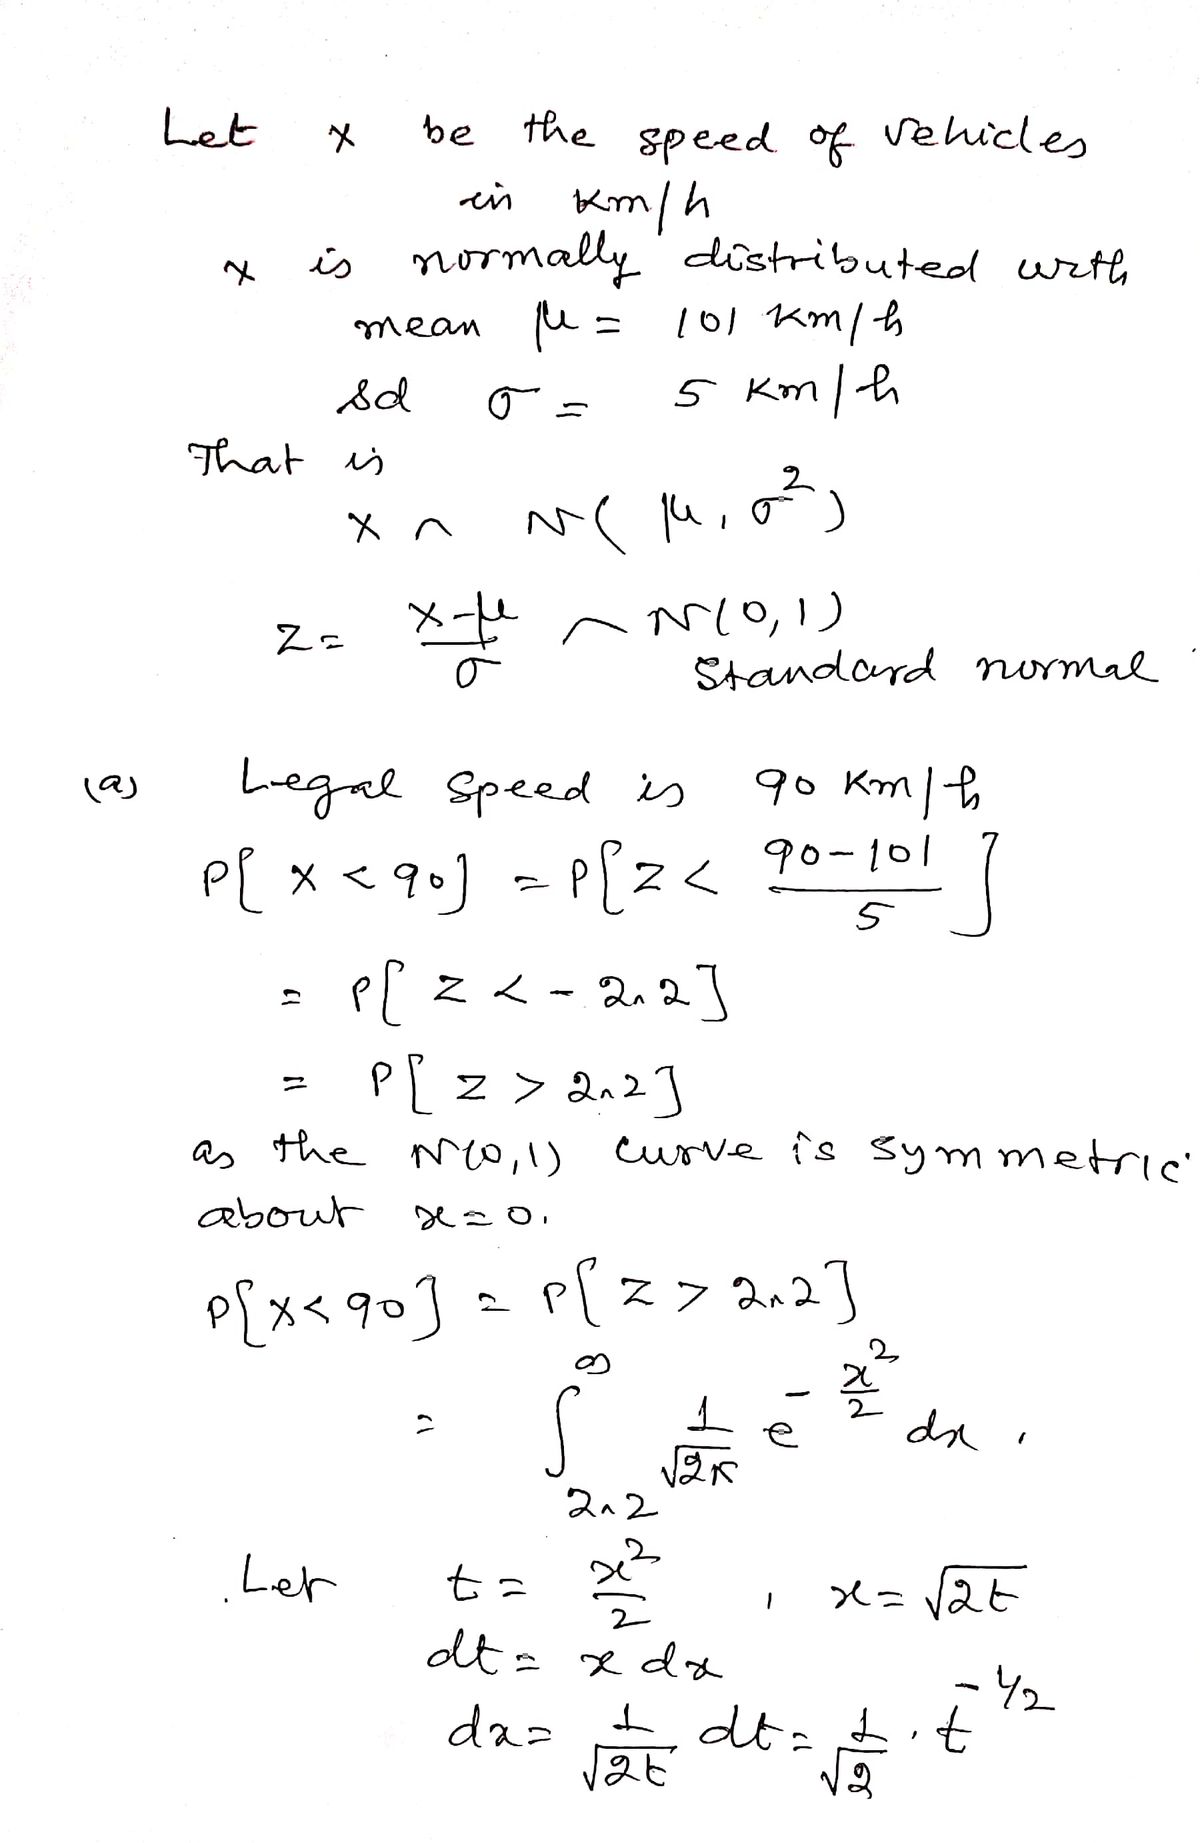 Let X be the speed of vehicles
in Km/h
X is normally distributed with
mean μ = 101 Km/h
sd σ = 5 Km/h
That is
X ~ N( μ, σ²)
Z = (X-μ)/σ ~ N(0,1)
Standard normal
(a) Legal speed is 90 Km/h
P[ X < 90] = P[ Z < (90-101)/5 ]
= P[ Z < - 2.2]
= P[ Z > 2.2]
as the N(0,1) curve is symmetric
about x = 0.
P[X<90] = P[ Z > 2.2]
= ∫_{2.2}^{∞} 1/√2π e^{-x²/2} dx .
Let t = x²/2 , x = √2t
dt = x dx
dx = 1/√2t dt = 1/√2 . t^{-1/2}